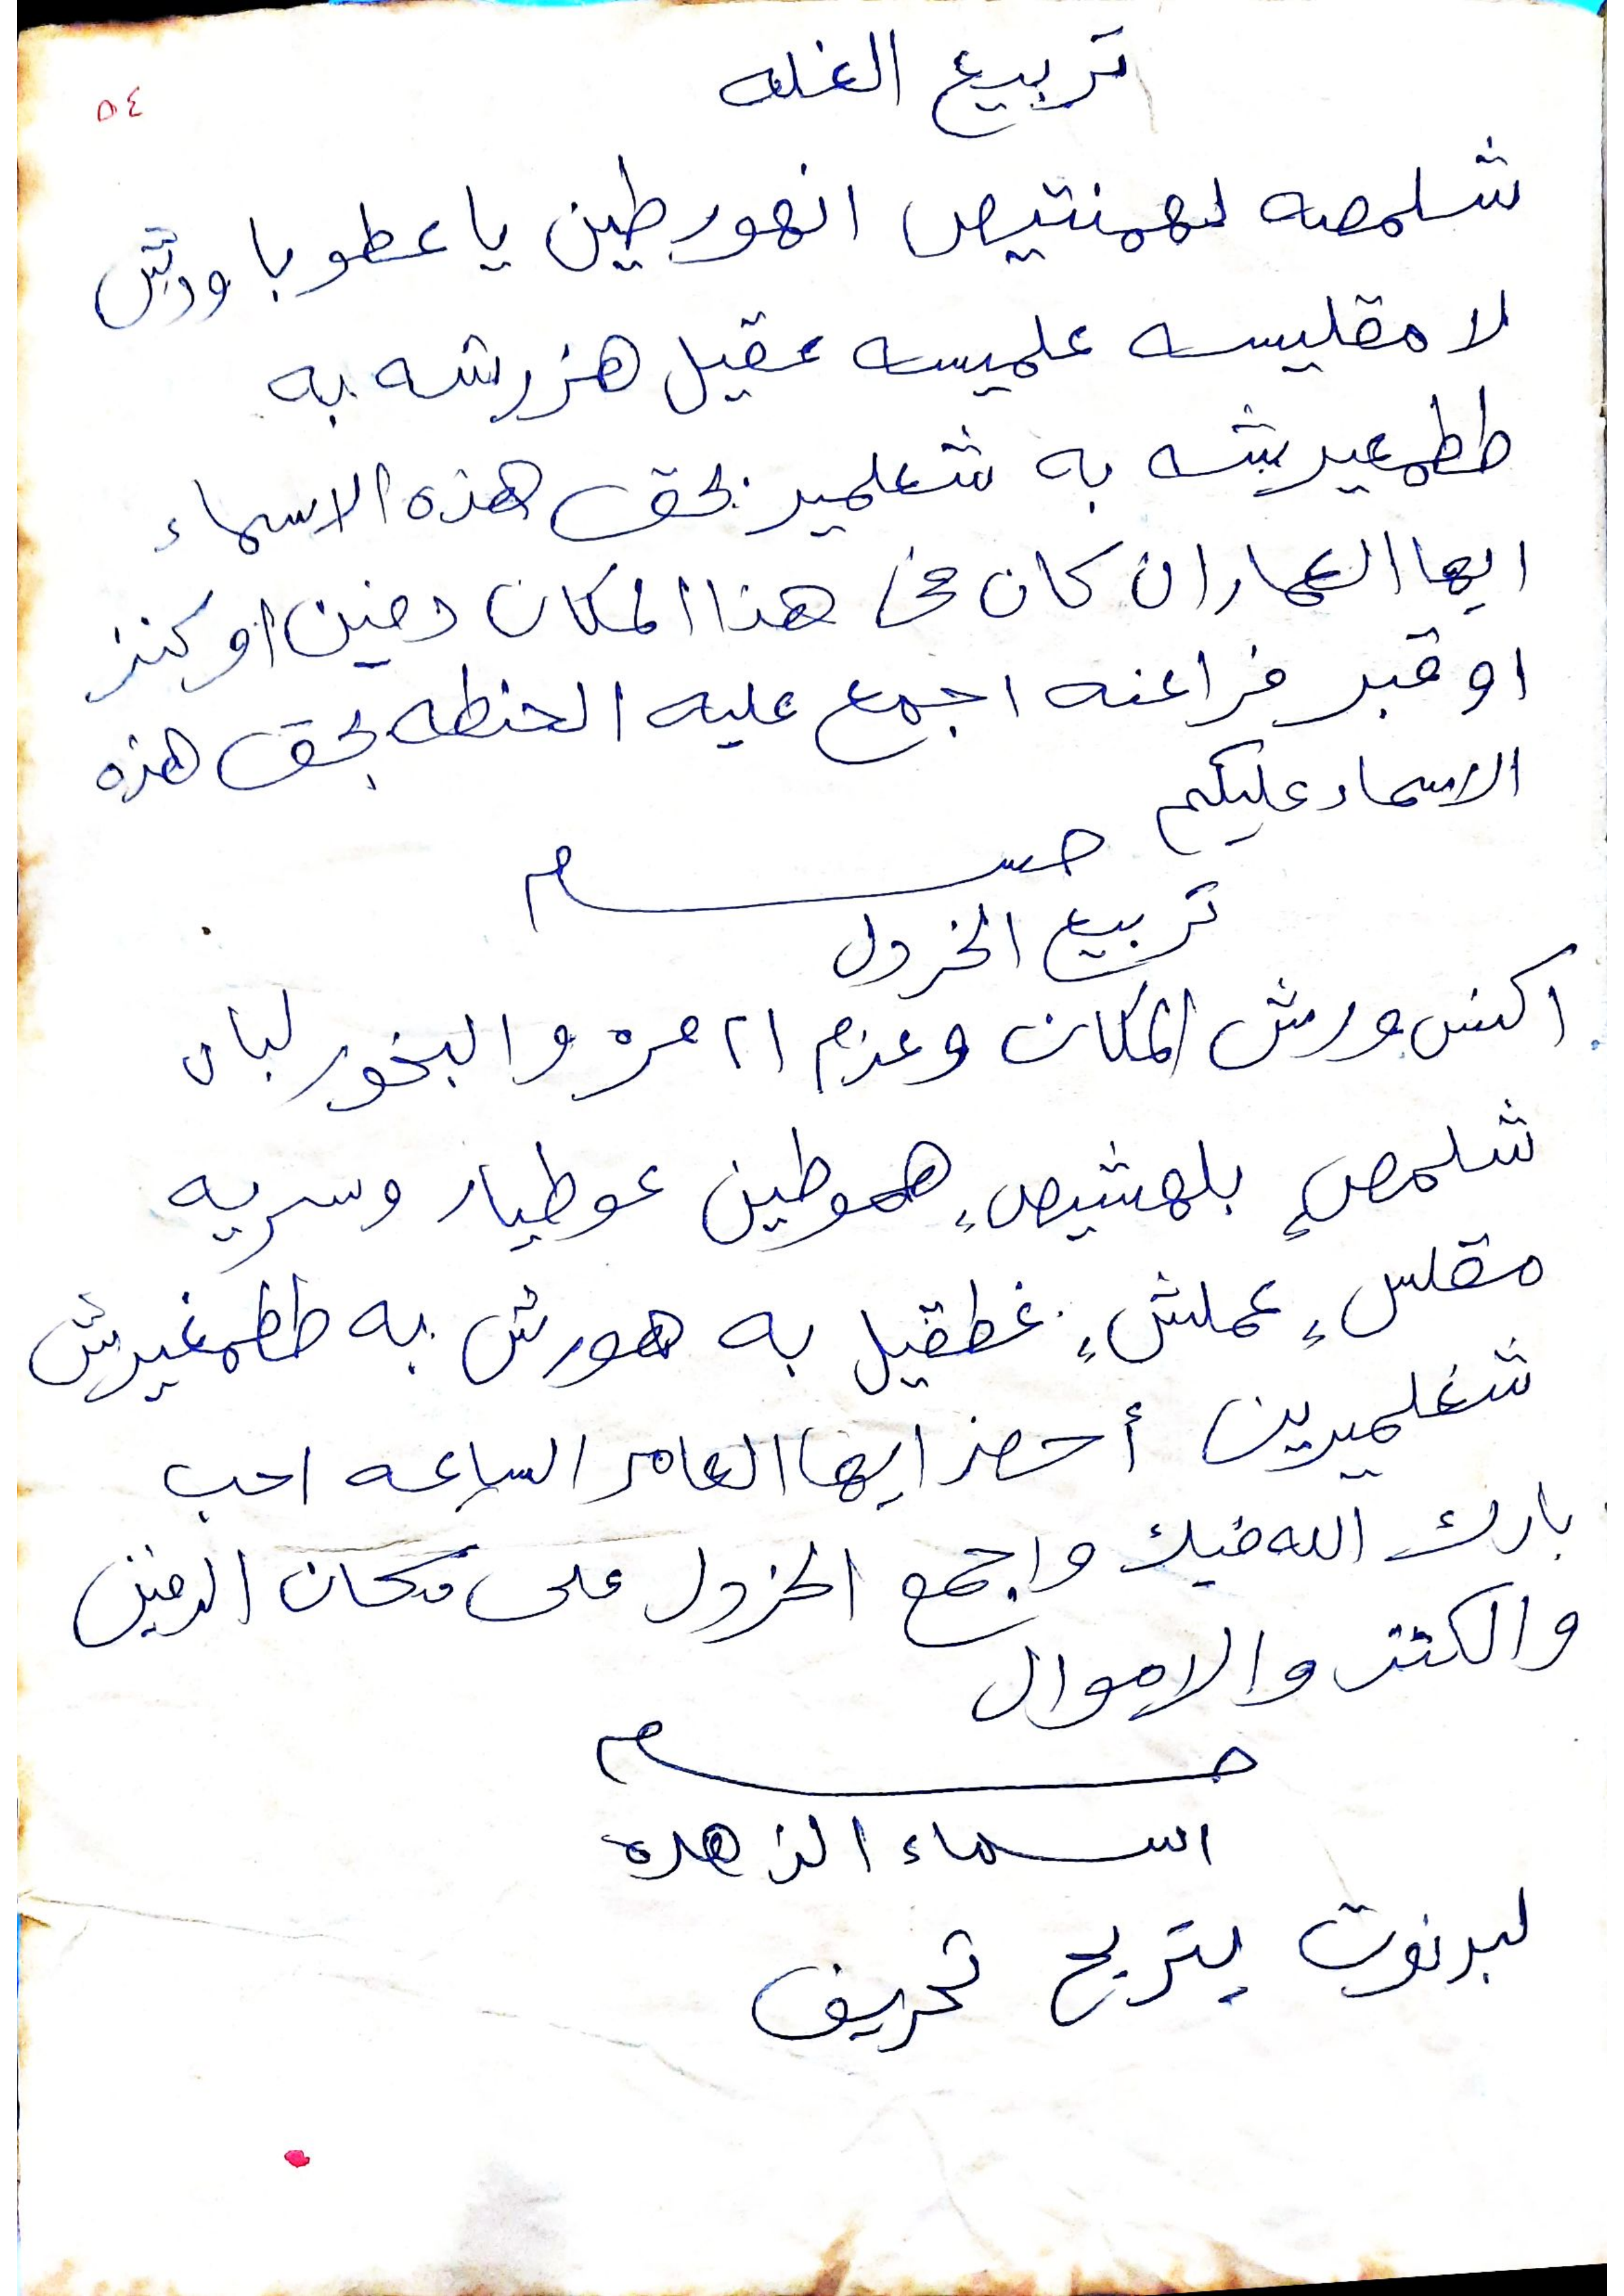 تربيع الغله
٥٤
شلمصه لهمنتيص انهورطين يا عطوبا ورش
لا مقليسه علميسه عقيل هزرشه به
ططمعيرشه به شعلمير بحق هذه الاسماء
ايها العمار ان كان في هذا المكان دفين او كنز
او قبر فراعنه اجمع عليه الحنطه بحق هذه
الاسماء عليكم
تربيع الخردل
اكنس ورش المكان وعزم ٢١ مره والبخور لبان
شلمصٍ بلهشيصٍ هموطين عوطيار وسريه
مقلسٍ عملشٍ غطقيل به هورش به ططمغيرش
شغلميرين أحضر ايها العامر الساعه احب
بارك الله فيك واجمع الخردل على مكان الدفين
والكنز والاموال
اسماء الزهره
لبرنوت يتربح تحريف